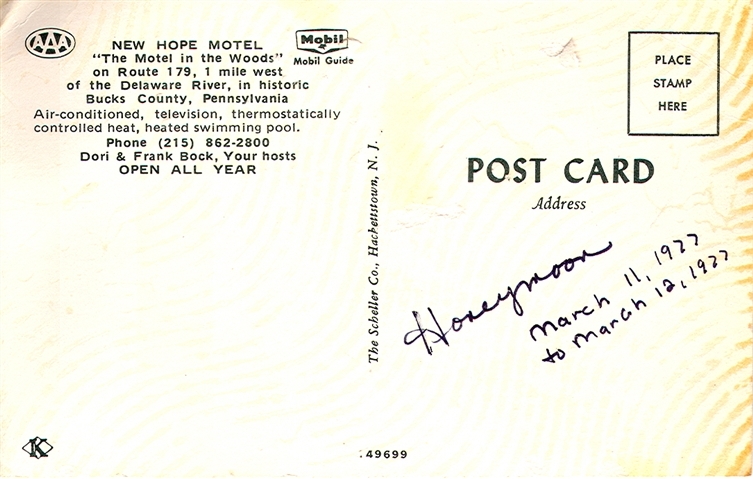 AAA
NEW HOPE MOTEL
"The Motel in the Woods"
on Route 179, 1 mile west
of the Delaware River, in historic
Bucks County, Pennsylvania
Air-conditioned, television, thermostatically
controlled heat, heated swimming pool.
Phone (215) 862-2800
Dori & Frank Bock, Your hosts
OPEN ALL YEAR
Mobil
Mobil Guide
K
The Scheller Co., Hackettstown, N. J.
49699
PLACE
STAMP
HERE
POST CARD
Address
Honeymoon
March 11, 1977
to March 12, 1977